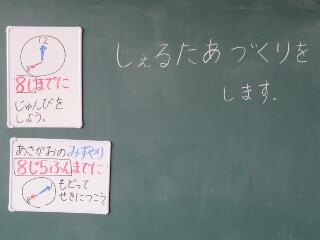 しぇるたあづくりを
します.
12
8
8じまでに
じゅんびを
しよう。
あさがおのみずやり
8じ5ふんまでに
もどって
せきにつこう。